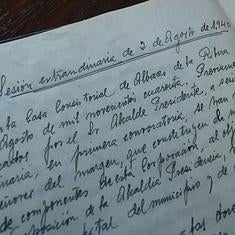 Sesión extraordinaria de 2 de Agosto de 1940
la Casa Consistorial de Albaas de la Ribera
Agosto de mil novecientos cuarenta. Previamente
cados por el Sr. Alcalde Presidente, a seri
en primera convocatoria, se han
inaria,
señores del margen, que constituyen de m
de componentes de esta Corporación, al obj
sposición de la Alcaldía Presidencia,
pital del municipio y de